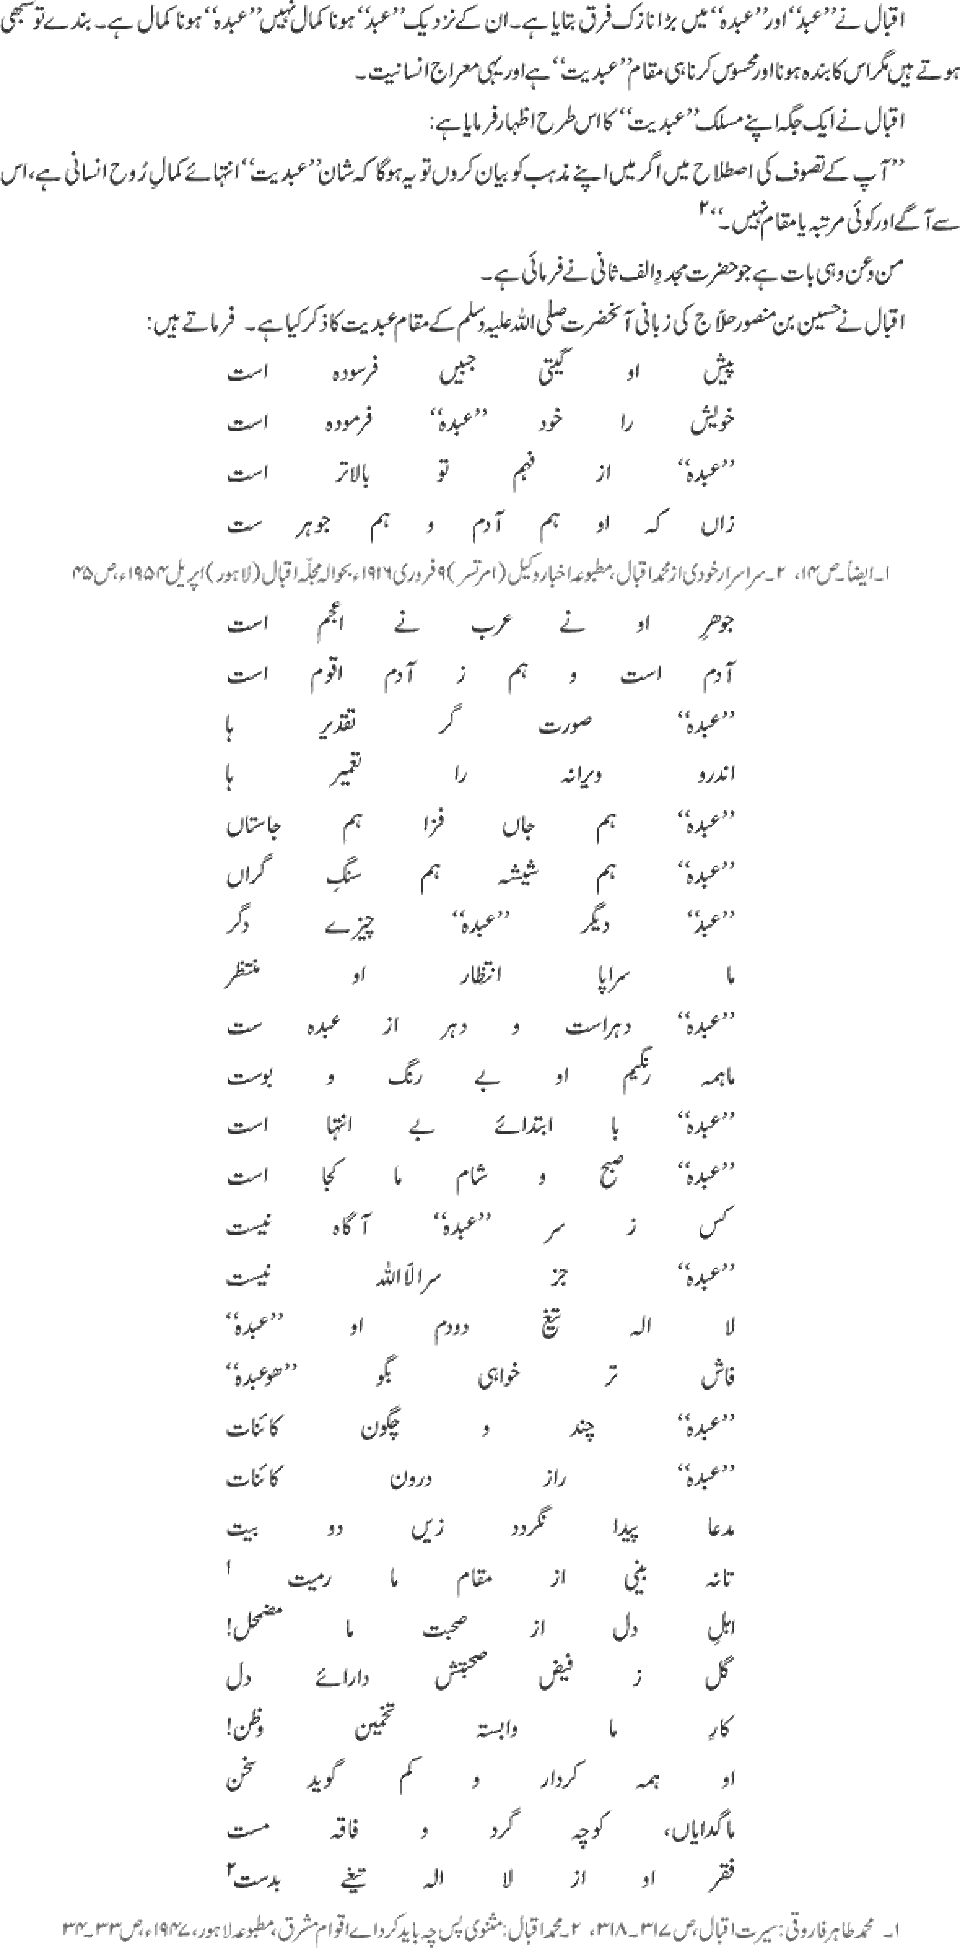 اقبال نے ’’عبدٗ‘‘ اور ’’عبدہٗ‘‘ میں بڑا نازک فرق بتایا ہے۔ ان کے نزدیک ’’عبدٗ‘‘ ہونا کمال نہیں ’’عبدہٗ‘‘ ہونا کمال ہے۔ بندے تو سبھی
ہوتے ہیں مگر اس کا بندہ ہونا اور محسوس کرنا ہی مقام ’’عبدیت‘‘ ہے اور یہی معراج انسانیت۔
اقبال نے ایک جگہ اپنے مسلک ’’عبدیت‘‘ کا اس طرح اظہار فرمایا ہے:
’’آپ کے تصوف کی اصطلاح میں اگر میں اپنے مذہب کو بیان کروں تو یہ ہوگا کہ شان ’’عبدیت‘‘ انتہائے کمالِ رُوح انسانی ہے، اس
سے آگے اور کوئی مرتبہ یا مقام نہیں۔‘‘۲
من و عن وہی بات ہے جو حضرت مجددِ الف ثانی نے فرمائی ہے۔
اقبال نے حسین بن منصور حلاّج کی زبانی آنحضرت صلی اللہ علیہ وسلم کے مقام عبدیت کا ذکر کیا ہے۔ فرماتے ہیں:
پیش او گیتی جبیں فرسودہ است
خویش را خود ’’عبدہٗ‘‘ فرمودہ است
’’عبدہٗ‘‘ از فہم تو بالاتر است
زاں کہ او ہم آدم و ہم جوہر ست
۱۔ایضاً۔ص۱۴، ۲۔سراسرار خودی از محمد اقبال، مطبوعہ اخبار وکیل (امرتسر) ۹ فروری ۱۹۱۶ء بحوالہ مجلّہ اقبال (لاہور) اپریل ۱۹۵۴ء، ص۴۵
جوھرِ او نے عرب نے اعجم است
آدم است و ہم ز آدم اقوم است
’’عبدہٗ‘‘ صورت گر تقدیر ہا
اندرو ویرانہ را تعمیر ہا
’’عبدہٗ‘‘ ہم جاں فزا ہم جاستاں
’’عبدہٗ‘‘ ہم شیشہ ہم سنگِ گراں
’’عبدٗ‘‘ دیگر ’’عبدہٗ‘‘ چیزے دگر
ما سراپا انتظار او منتظر
’’عبدہٗ‘‘ دہراست و دہر از عبدہ ست
ماہمہ رنگیم او بے رنگ و بوست
’’عبدہٗ‘‘ با ابتدائے بے انتہا است
’’عبدہٗ‘‘ صبح و شام ما کجا است
کس ز سر ’’عبدہٗ‘‘ آگاہ نیست
’’عبدہٗ‘‘ جز سرالاّاللہ نیست
لا الہ تیغ دودم او ’’عبدہٗ‘‘
فاش تر خواہی بگو ’’ھوعبدہٗ‘‘
’’عبدہٗ‘‘ چند و چگون کائنات
’’عبدہٗ‘‘ راز درون کائنات
مدعا پیدا نگردد زیں دو بیت
تانہ بینی از مقام ما رمیت ۱
اہلِ دل از صحبت ما مضمحل!
گل ز فیض صحبتش دارائے دل
کارِ ما وابستہ تخمین وظن!
او ہمہ کردار و کم گوید سخن
ماگدایاں، کوچہ گرد و فاقہ مست
فقر او از لا الہ تیغے بدست۲
۱۔ محمد طاہر فاروقی: سیرت اقبال، ص ۳۱۷۔۳۱۸، ۲۔محمد اقبال: مثنوی پس چہ باید کرد اے اقوام مشرق، مطبوعہ لاہور، ۱۹۴۷ء، ص ۳۳۔۳۴